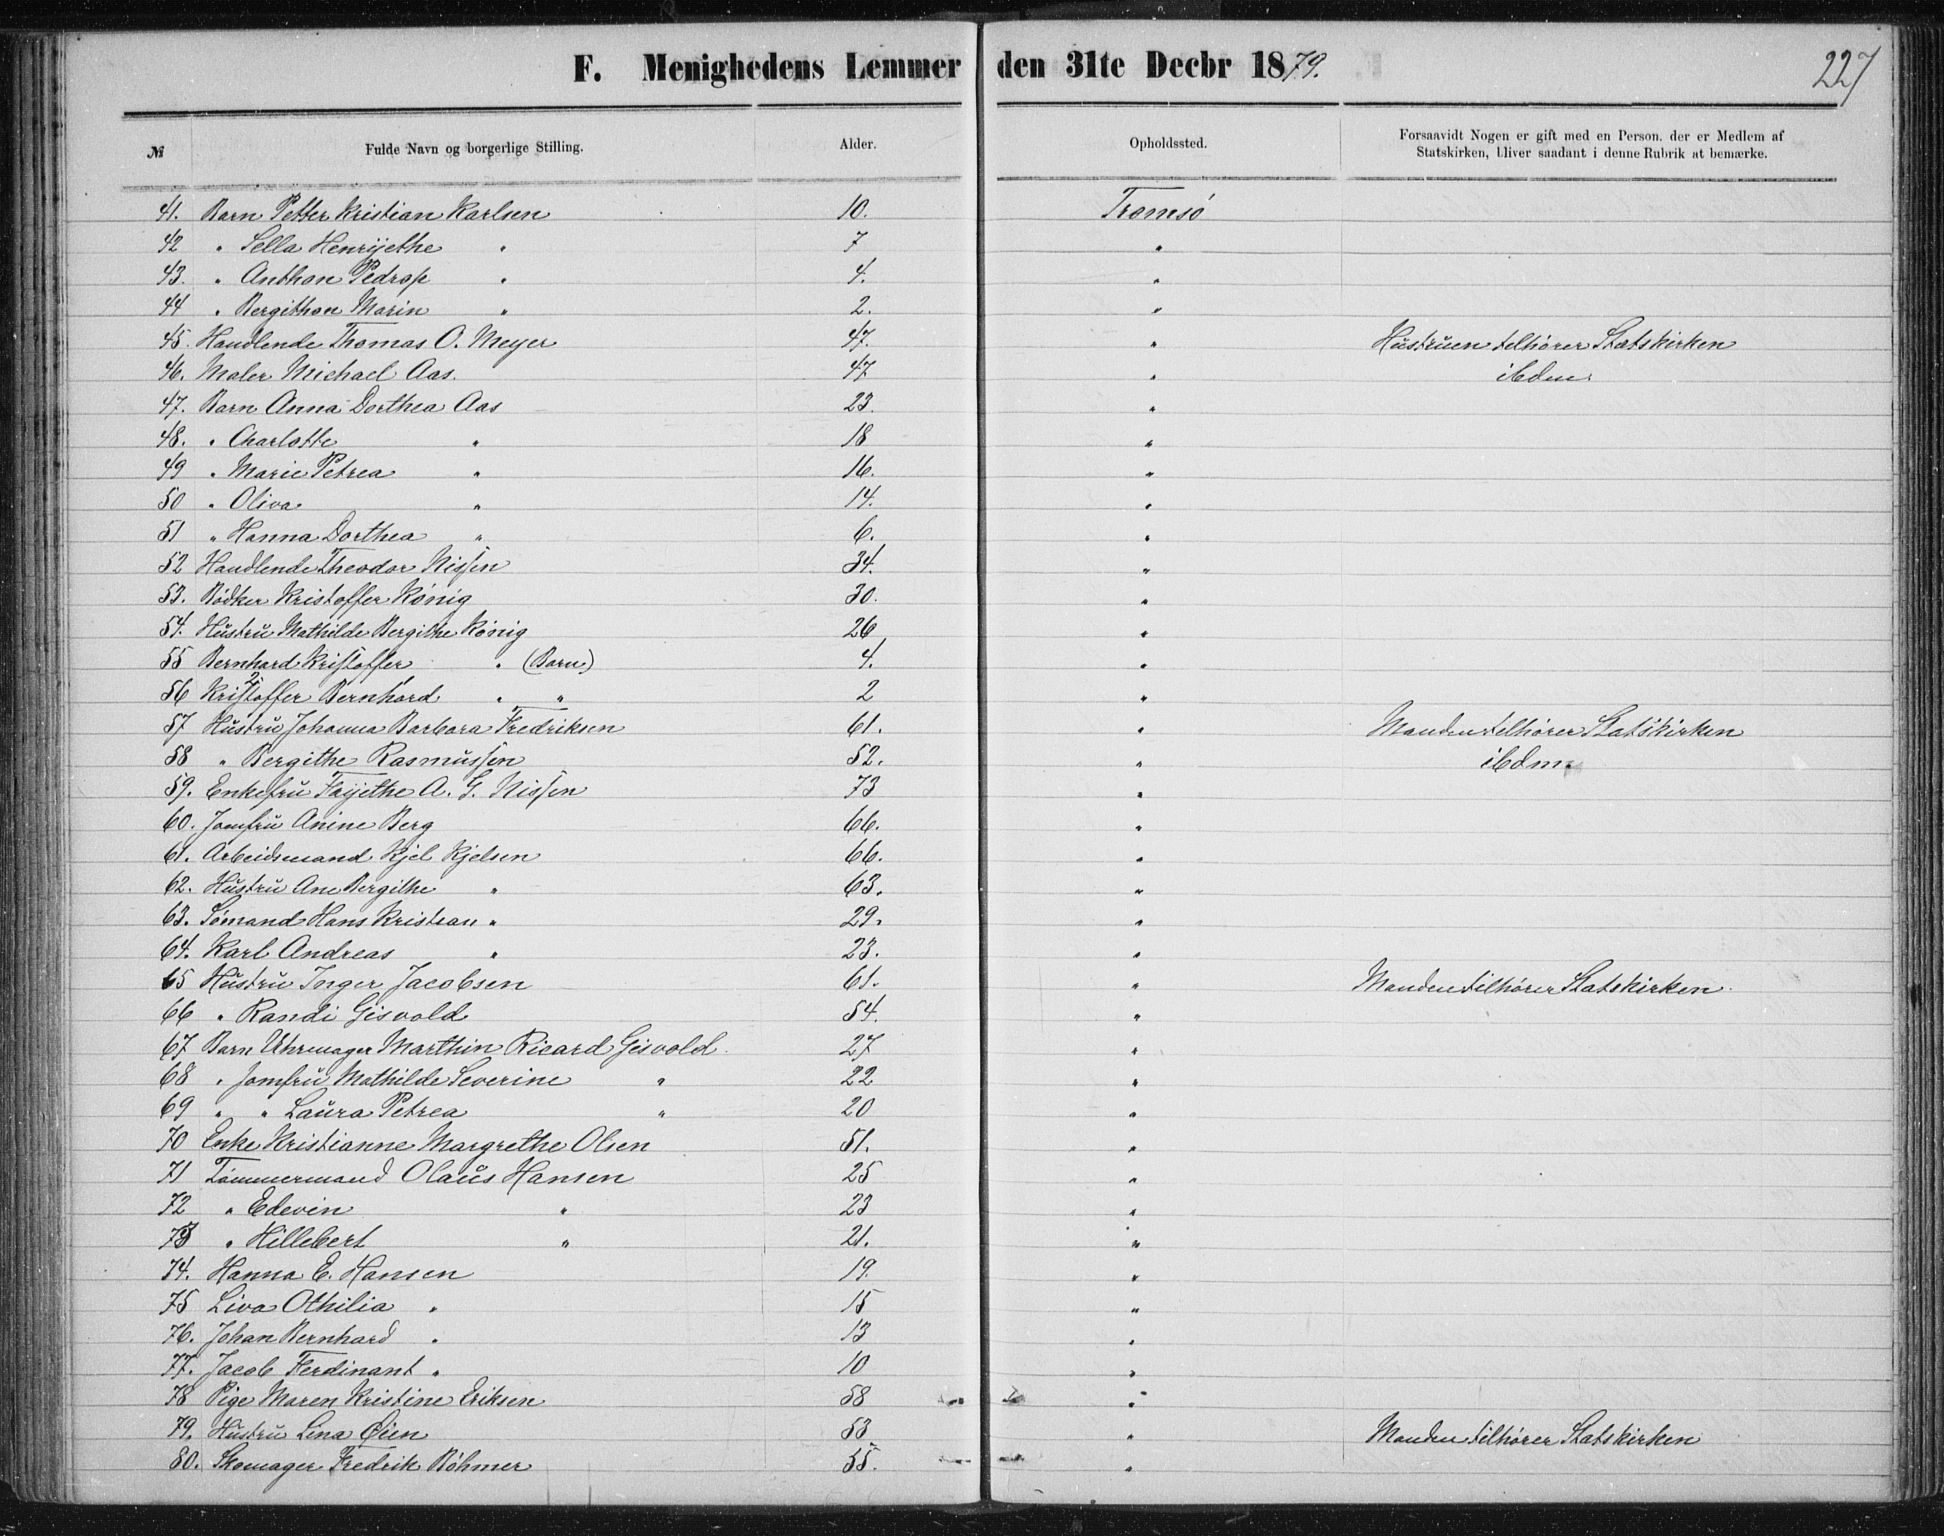 F. Menighedens Lemmer den 31te Decbr 1879. 227
№ Fulde Navn og borgerlige Stilling. Alder. Opholdssted. Forsaavidt Nogen er gift med en Person, der er Medlem af
Statskirken, bliver saadant i denne Rubrik at bemærke.
41. Barn Petter Kristian Karlsen 10. Tromsø
42 " Sella Henrijethe " 7 "
43. " Anthon Pedrop " 4. "
44 " Bergithon Marin " 2. "
45. Handlende Thomas O. Meyer 47. " Hustruen tilhører Statskirken
46. Maler Michael Aas. 47 " ibdm.
47. Barn Anna Dorthea Aas 23. "
48. " Charlotte " 18 "
49 " Marie Petrea " 16. "
50 " Oliva " 14. "
51 " Hanna Dorthea " 6. "
52 Handlende Theodor Nissen 34. "
53. Bødker Kristoffer König 30. "
54. Hustru Mathilde Bergithe König 26 "
55 Bernhard Kristoffer " (Barn) 4. "
56 Kristoffer Bernhard " " 2 "
57 Hustru Johanna Barbara Fredriksen 61. " Manden tilhører Statskirken
58 " Bergithe Rasmussen 52. " ibdm.
59. Enkefru A. G. Nissen 73 "
60. Jomfru Anine Berg 66. "
61. Arbeidsmand Kjel Kjelsen 66. "
62. Hustru Ane Bergithe " 63. "
63. Sømand Hans Kristian " 29. "
64. Karl Andreas " 23. "
65 Hustru Inger Jacobsen 61. " Manden tilhører Statskirken
66 " Randi Gisvold 54. "
67 Barn Uhrmager Marthin Ricard Gisvold. 27 "
68 " Jomfru Mathilde Severine " 22 "
69 " " Laura Petrea " 20 "
70 Enke Kristianne Margrethe Olsen 51. "
71 Tømmermand Olaus Hansen 25 "
72 " Edevin " 23 "
73 " Hillebert " 21. "
74. Hanna E. Hansen 19. "
75 Liva Othilia " 15 "
76. Johan Bernhard " 13 "
77. Jacob Ferdinant " 10 "
78 Pige Maren Kristine Eriksen 58 "
79. Hustru Lina Øien 53 " Manden tilhører Statskirken
80. Skomager Fredrik Böhmer 55. "